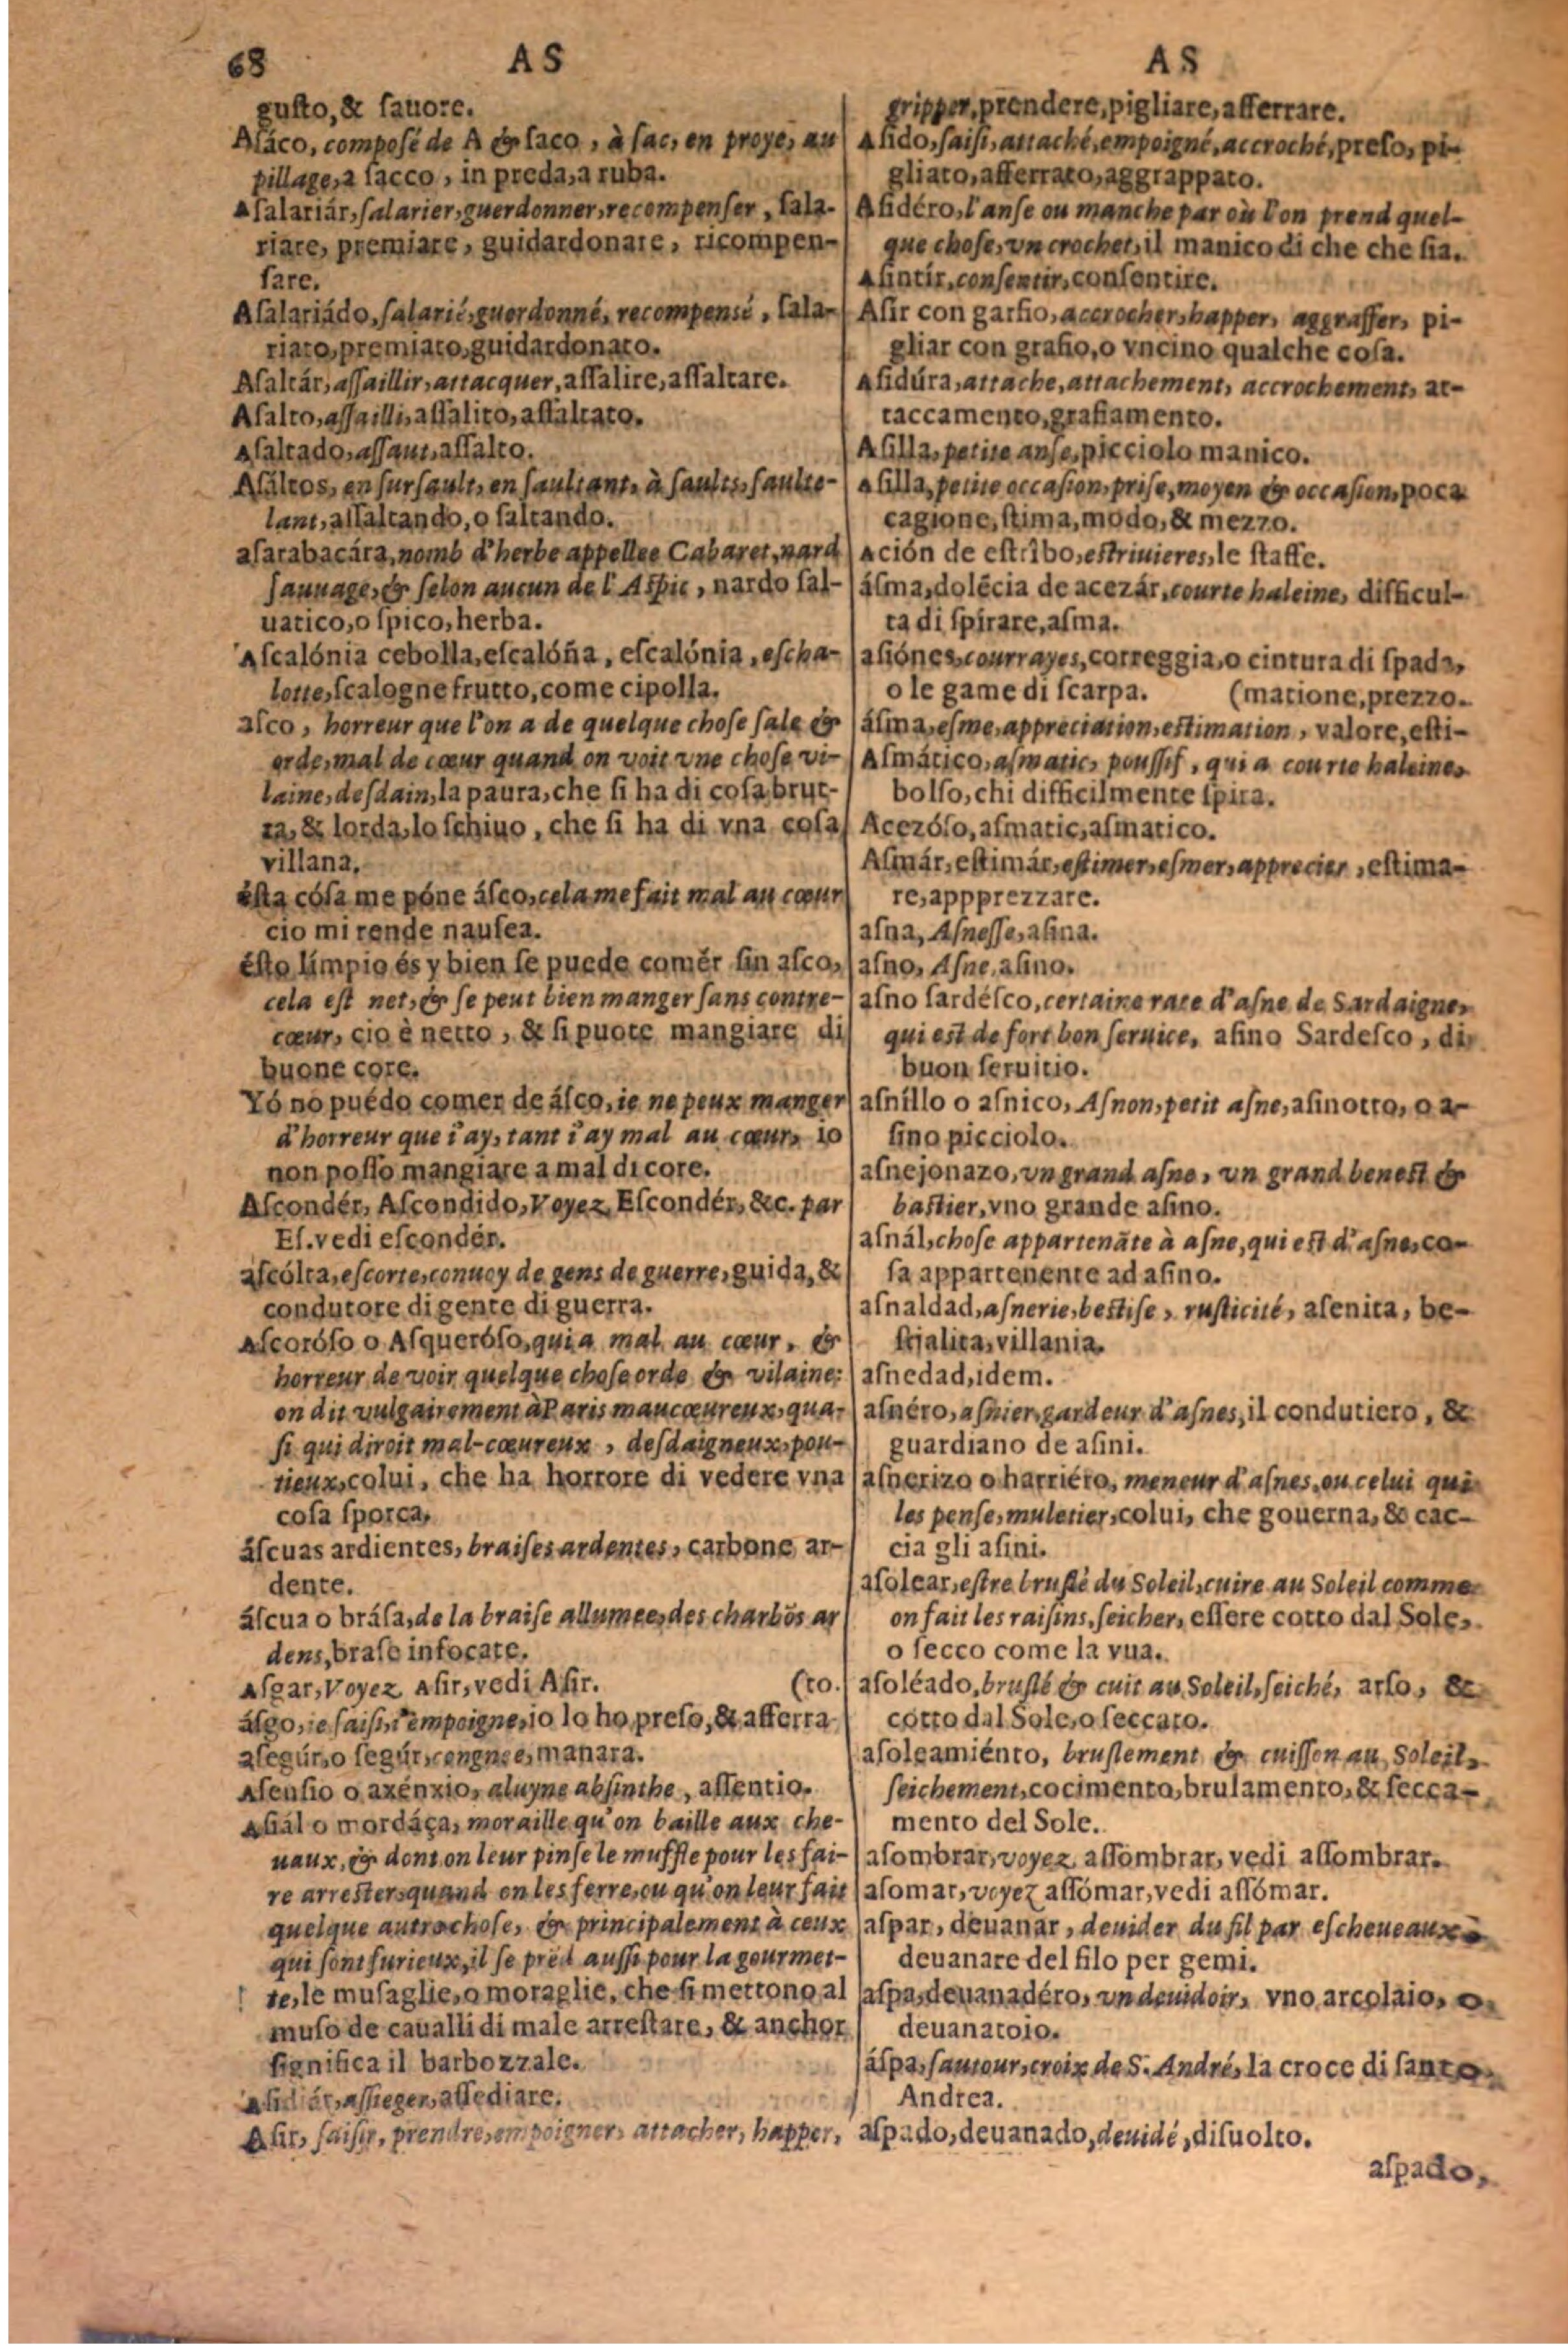 68
AS
AS
guſto, & ſauore.
Aſáco, compoſé de A & ſaco, à ſac, en proye, au
pillage, a ſacco, in preda, a ruba.
Aſalariár, ſalarier, guerdonner, recompenſer, ſala-
riare, premiare, guidardonare, ricompen-
ſare.
Aſalariádo, ſalarié, guerdonné, recompenſé, ſala-
riato, premiato, guidardonato.
Aſaltár, aſſaillir, attacquer, aſſalire, aſſaltare.
Aſalto, aſſailli, aſſalito, aſſaltato.
Aſaltado, aſſaut, aſſalto.
Aſáltos, en ſurſault, en ſaultant, à ſaults, ſaulte-
lant, aſſaltando, o ſaltando.
aſarabacára, nomb d'herbe appellee Cabaret, nard
ſauuage, & ſelon aucun de l'Aſpic, nardo ſal-
uatico, o ſpico, herba.
Aſcalónia cebolla, eſcalóña, eſcalónia, eſcha-
lotte, ſcalogne frutto, come cipolla.
aſco, horreur que l'on a de quelque choſe ſale &
orde, mal de cœur quand on voit vne choſe vi-
laine, deſdain, la paura, che ſi ha di coſa brut-
ta, & lorda, lo ſchiuo, che ſi ha di vna coſa
villana.
ésta cóſa me póne áſco, cela me fait mal au cœur
cio mi rende nauſea.
éſto límpio és y bien ſe puede comér ſin aſco,
cela est net, & ſe peut bien manger ſans contre-
cœur, cio è netto, & ſi puote mangiare di
buone core.
Yó no puédo comer de áſco, ie ne peux manger
d'horreur que i'ay, tant i'ay mal au cœur, io
non poſſo mangiare a mal di core.
Aſcondér, Aſcondido, Voyez Eſcondér, &c. par
Eſ. vedi eſcondér.
aſcólta, eſcorte, conuoy de gens de guerre, guida, &
condutore di gente di guerra.
Aſcoróſo o Aſqueróſo, qui a mal au cœur, &
horreur de voir quelque choſe orde & vilaine:
on dit vulgairement à Paris maucœureux, qua-
ſi qui diroit mal-cœureux, deſdaigneux, pou-
tieux, colui, che ha horrore di vedere vna
coſa ſporca.
áſcuas ardientes, braiſes ardentes, carbone ar-
dente.
áſcua o bráſa, de la braiſe allumee, des charbõs ar
dens, braſe infocate.
Aſgar, Voyez Aſir, vedi Aſir. (to.
áſgo, ie ſaiſi, i'empoigne, io lo ho preſo, & afferra
aſegúr, o ſegúr, congnee, manara.
Aſenſio o axénxio, aluyne abſinthe, aſſentio.
Aſiál o mordáça, moraille qu'on baille aux che-
uaux, & dont on leur pinſe le muffle pour les fai-
re arreſter, quand on les ferre, ou qu'on leur fait
quelque autre choſe, & principalement à ceux
qui ſont furieux, il ſe prẽd auſſi pour la gourmet-
te, le muſaglie, o moraglie, che ſi mettono al
muſo de caualli di male arreſtare, & anchor
ſignifica il barbozzale.
Aſidiár, aſſieger, aſſediare.
Aſir, ſaiſir, prendre, empoigner, attacher, happer,
gripper, prendere, pigliare, afferrare.
Aſido, ſaiſi, attaché, empoigné, accroché, preſo, pi-
gliato, afferrato, aggrappato.
Aſidéro, l'anſe ou manche par où l'on prend quel-
que choſe, vn crochet, il manico di che che ſia.
Aſintír, conſentir, conſentire.
Aſir con garfio, accrocher, happer, aggraffer, pi-
gliar con grafio, o vncino qualche coſa.
Aſidúra, attache, attachement, accrochement, at-
taccamento, grafiamento.
Aſilla, petite anſe, picciolo manico.
Aſilla, petite occaſion, priſe, moyen & occaſion, poca
cagione, ſtima, modo, & mezzo.
Ación de eſtrîbo, eſtriuieres, le ſtaffe.
áſma, dolẽcia de acezár, courte haleine, difficul-
ta di ſpirare, aſma.
aſiónes, courrayes, correggia, o cintura di ſpada,
o le game di ſcarpa. (matione, prezzo.
áſma, eſme, appreciation, eſtimation, valore, eſti-
Aſmático, aſmatic, pouſſif, qui a courte haleine,
bolſo, chi difficilmente ſpira.
Acezóſo, aſmatic, aſmatico.
Aſmár, eſtimár, eſtimer, eſmer, apprecier, eſtima-
re, appprezzare.
aſna, Aſneſſe, aſina.
aſno, Aſne, aſino.
aſno ſardéſco, certaine race d'aſne de Sardaigne,
qui est de fort bon ſeruice, aſino Sardeſco, di
buon ſeruitio.
aſníllo o aſnico, Aſnon, petit aſne, aſinotto, o a-
ſino picciolo.
aſnejonazo, vn grand aſne, vn grand beneſt &
baſtier, vno grande aſino.
aſnál, choſe appartenãte à aſne, qui eſt d'aſne, co-
ſa appartenente ad aſino.
aſnaldad, aſnerie, beſtiſe, ruſticité, aſenita, be-
ſtialita, villania.
aſnedad, idem.
aſnéro, aſnier, gardeur d'aſnes, il condutiero, &
guardiano de aſini.
aſnerizo o harriéro, meneur d'aſnes, ou celui qui
les penſe, muletier, colui, che gouerna, & cac-
cia gli aſini.
aſolear, eſtre bruſlé du Soleil, cuire au Soleil comme
on fait les raiſins, ſeicher, eſſere cotto dal Sole,
o ſecco come la vua.
aſoléado, bruſlé & cuit au Soleil, ſeiché, arſo, &
cotto dal Sole, o ſeccato.
aſoleamiénto, bruſlement & cuiſſon au Soleil,
ſeichement, cocimento, brulamento, & ſecca-
mento del Sole.
aſombrar, voyez aſſombrar, vedi aſſombrar.
aſomar, voyez aſſómar, vedi aſſómar.
aſpar, deuanar, deuider du fil par eſcheueaux,
deuanare del filo per gemi.
aſpa, deuanadéro, vn deuidoir, vno arcolaio, o
deuanatoio.
áſpa, ſautour, croix de S. André, la croce di ſanto
Andrea.
aſpado, deuanado, deuidé, diſuolto.
aſpado,